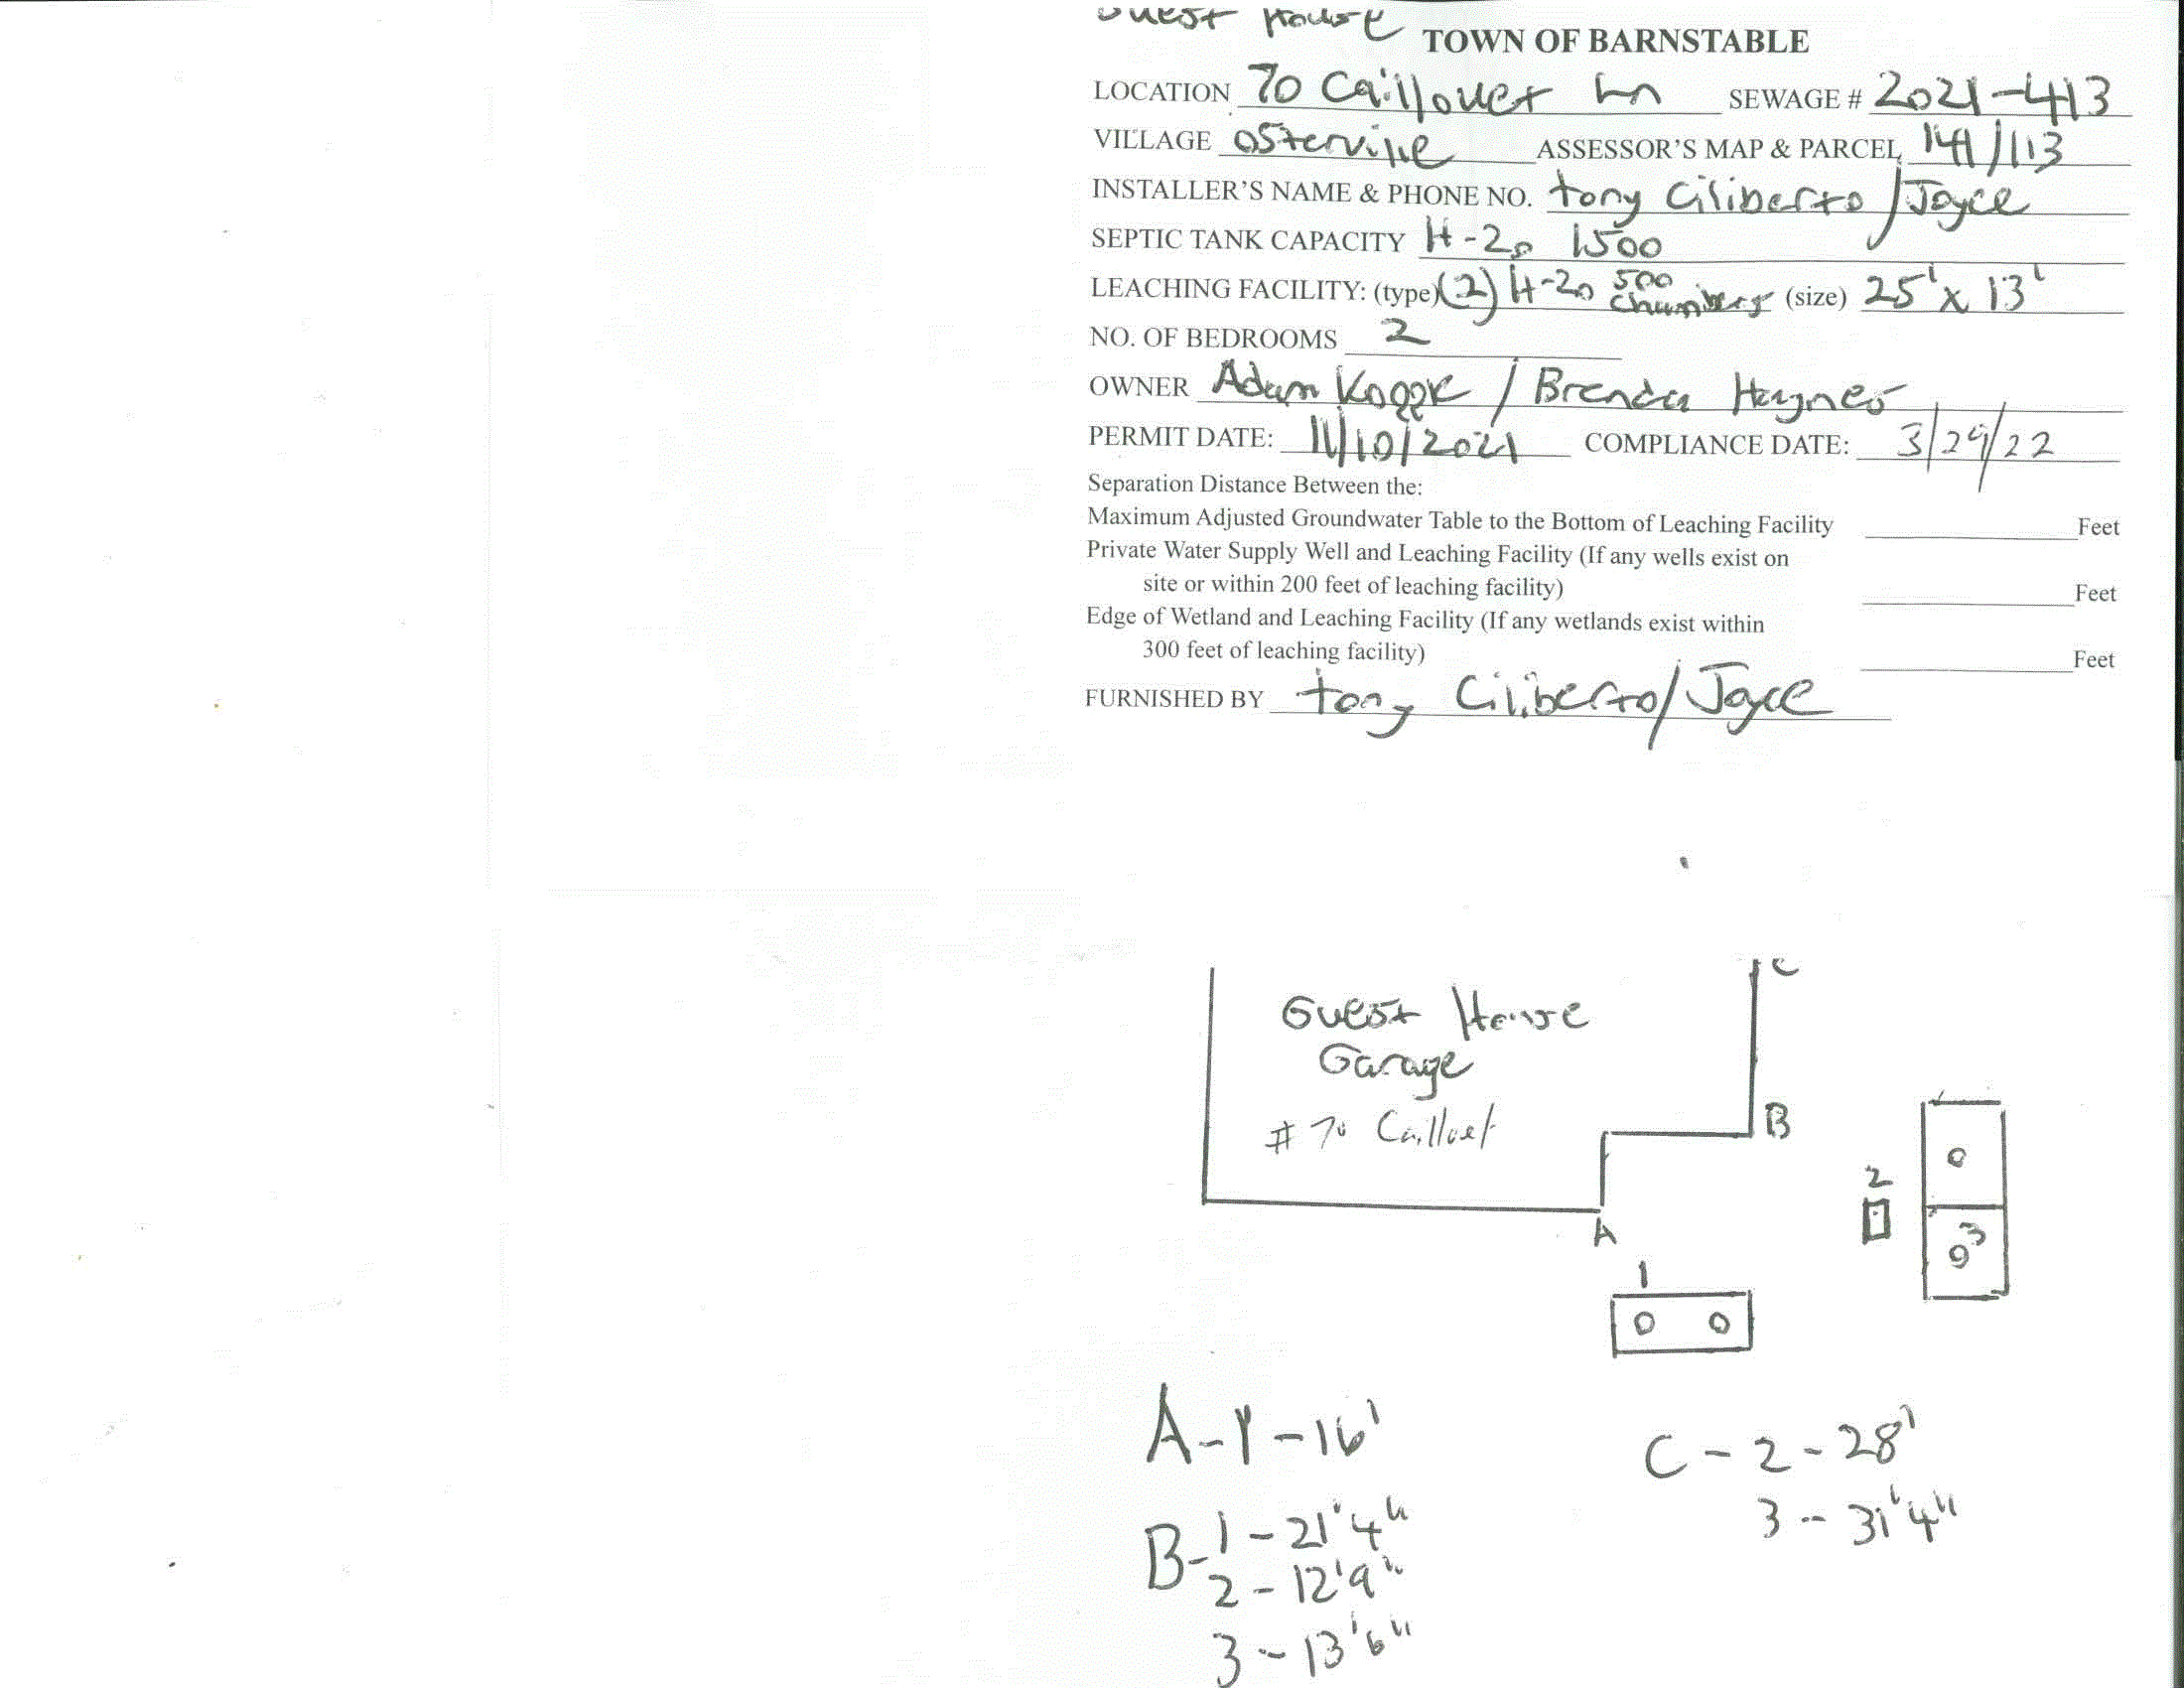 Guest House
TOWN OF BARNSTABLE
LOCATION 70 Caillouet Ln SEWAGE # 2021-413
VILLAGE Osterville ASSESSOR'S MAP & PARCEL 141/113
INSTALLER'S NAME & PHONE NO. tony Ciliberto/Joyce
SEPTIC TANK CAPACITY H-20 1500
LEACHING FACILITY: (type) (2) H-20 500 Chambers (size) 25' x 13'
NO. OF BEDROOMS 2
OWNER Adam / Brenda Haynes
PERMIT DATE: 11/10/2021 COMPLIANCE DATE: 3/29/22
Separation Distance Between the:
Maximum Adjusted Groundwater Table to the Bottom of Leaching Facility Feet
Private Water Supply Well and Leaching Facility (If any wells exist on
site or within 200 feet of leaching facility) Feet
Edge of Wetland and Leaching Facility (If any wetlands exist within
300 feet of leaching facility) Feet
FURNISHED BY tony Ciliberto/Joyce
C
Guest House
Garage
# 70 Caillouet
B
2
3
A
1
A-1-16'
C-2-28'
3-31'4"
B-1-21'4"
2-12'9"
3-13'6"